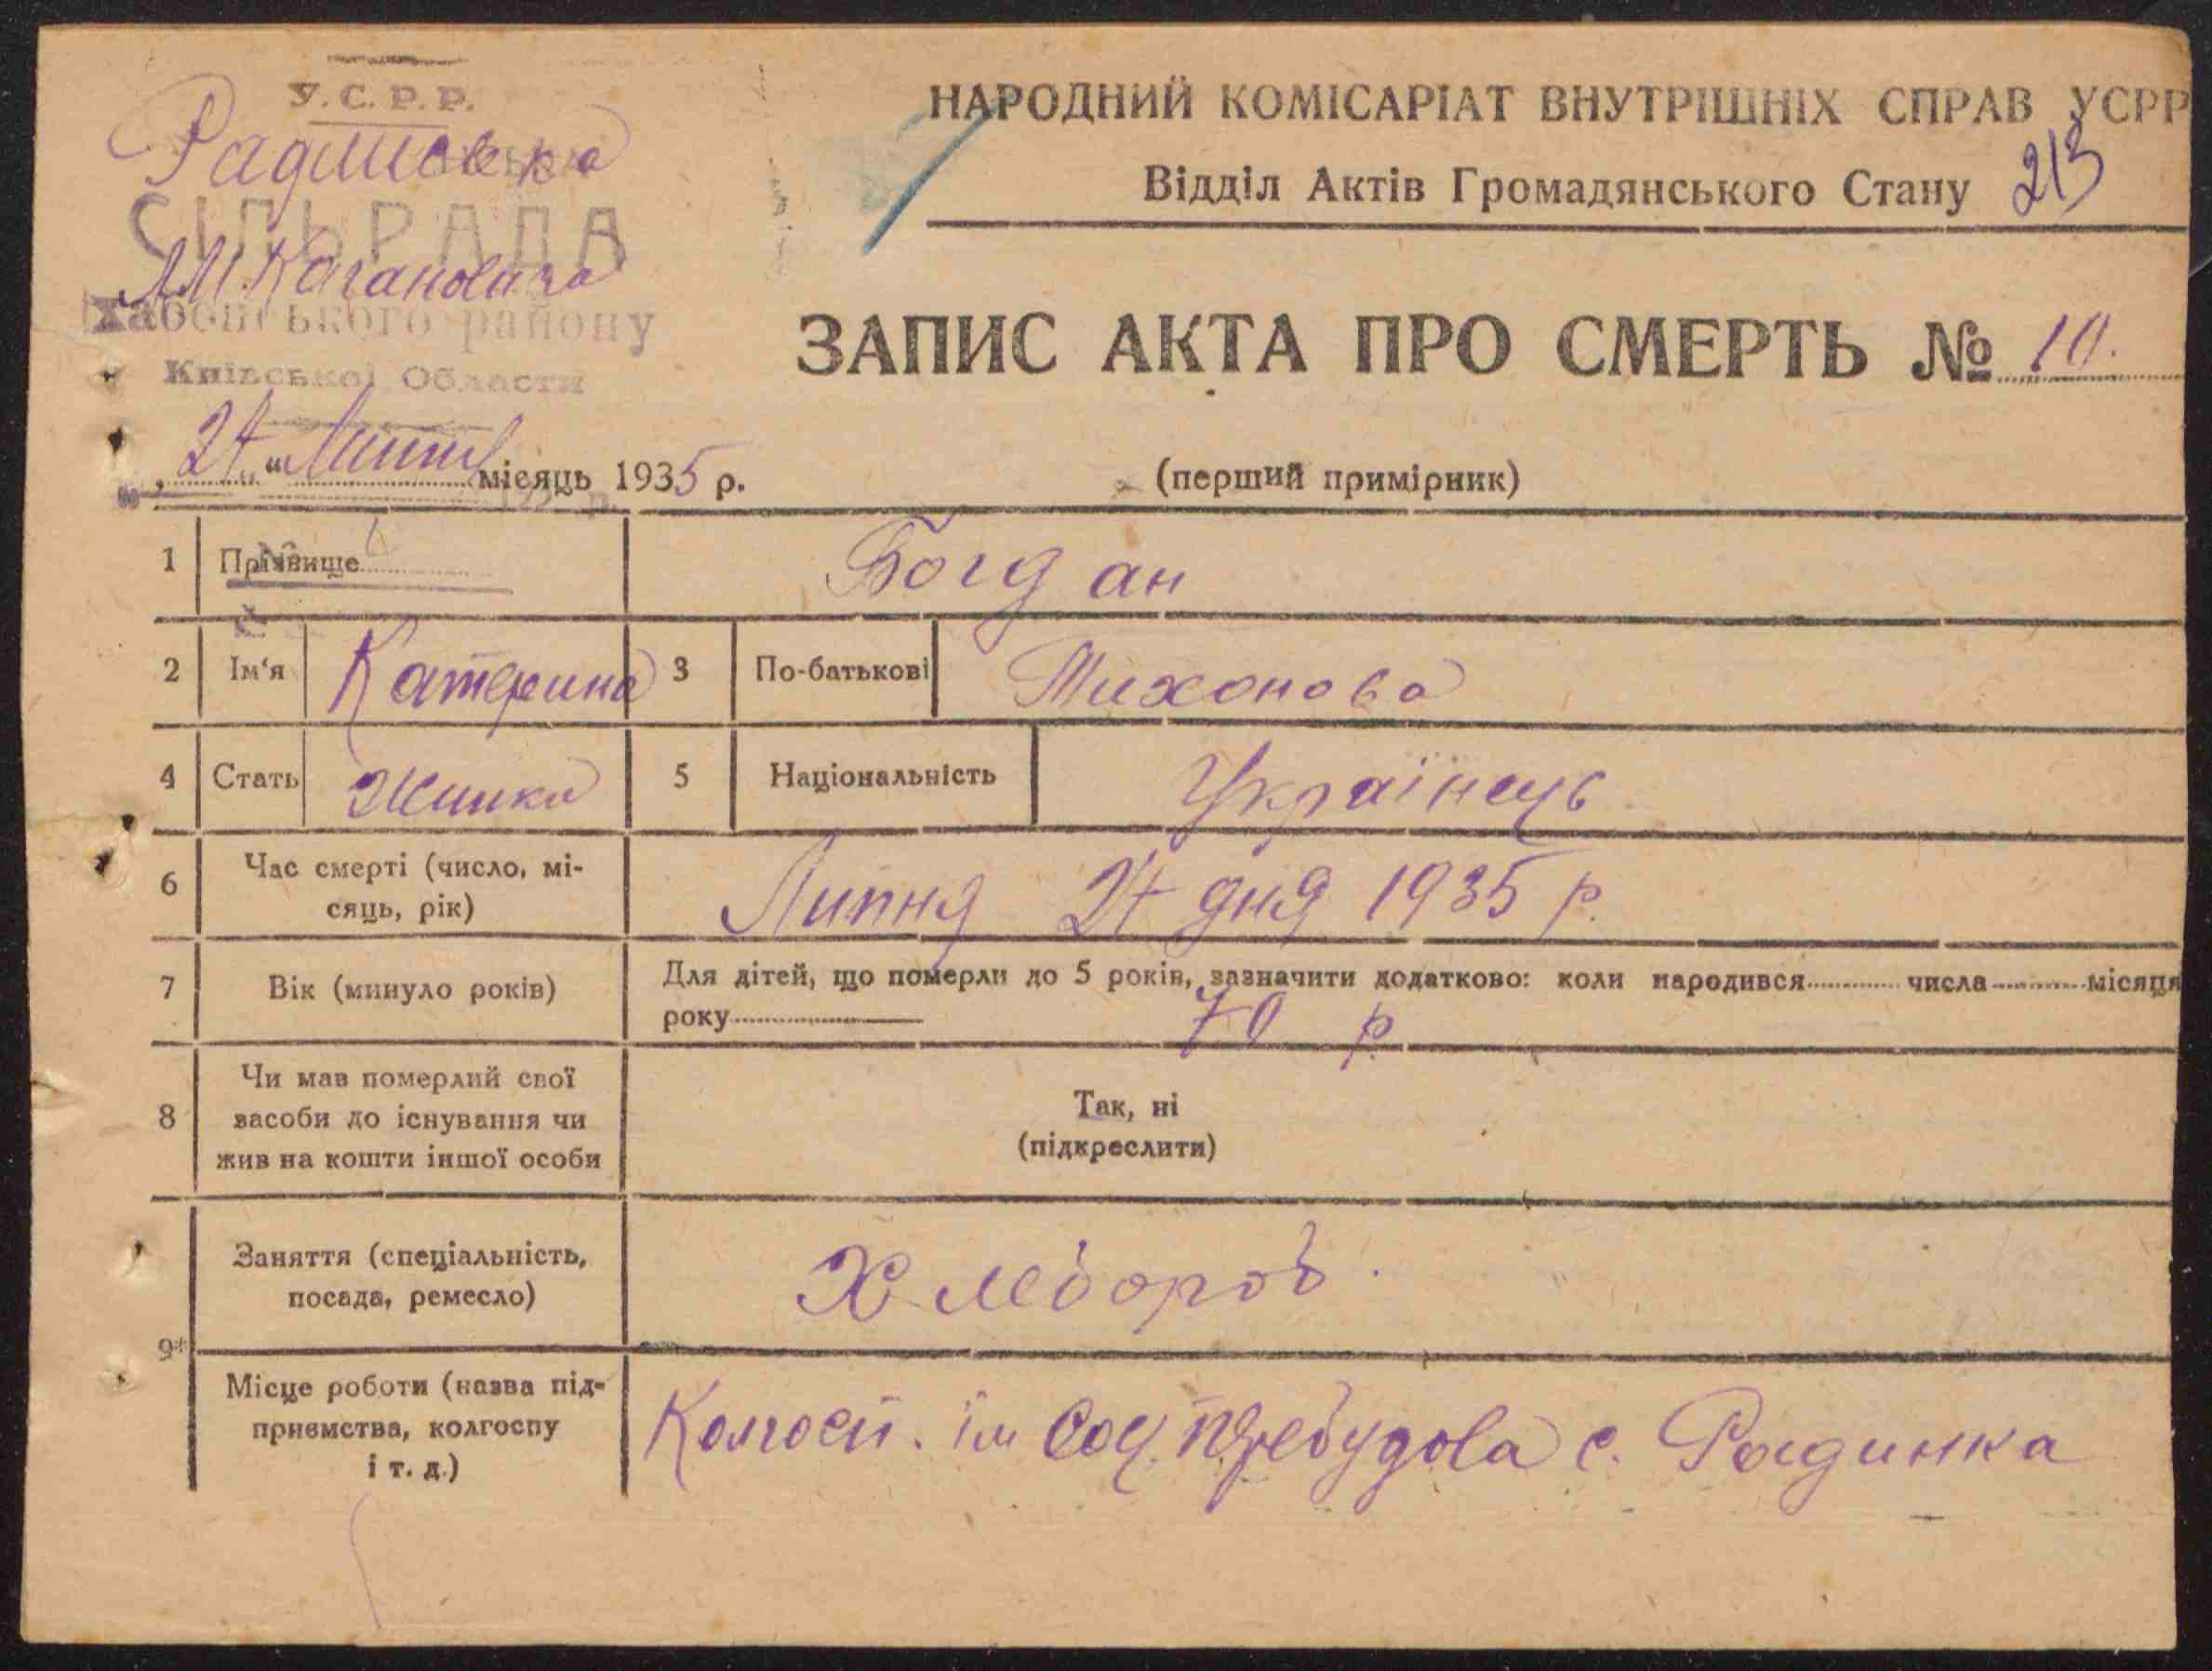 У.С.Р.Р.
СІЛЬРАДА
Л.М. Кагановича
Хабенського району
Київської Області
НАРОДНИЙ КОМІСАРІАТ ВНУТРІШНІХ СПРАВ УСРР
Відділ Актів Громадянського Стану 213
ЗАПИС АКТА ПРО СМЕРТЬ № 10.
„ 24 “ Липня місяць 1935 р.
(перший примірник)
1 Прізвище Богдан
2 Ім'я Катерина 3 По-батькові Тихонова
4 Стать Жинка 5 Національність Українець
6 Час смерті (число, мі-
сяць, рік) Липня 24 дня 1935 р.
7 Вік (минуло років) Для дітей, що померли до 5 років, зазначити додатково: коли народився числа місяця
року 70 р
8 Чи мав померлий свої
засоби до існування чи
жив на кошти іншої особи
Так, ні
(підкреслити)
9*
Заняття (спеціальність,
посада, ремесло) Хлебороб.
Місце роботи (назва під-
приємства, колгоспу
і т. д.)
Колгосп. ім Соц. перебудова с. Радинка